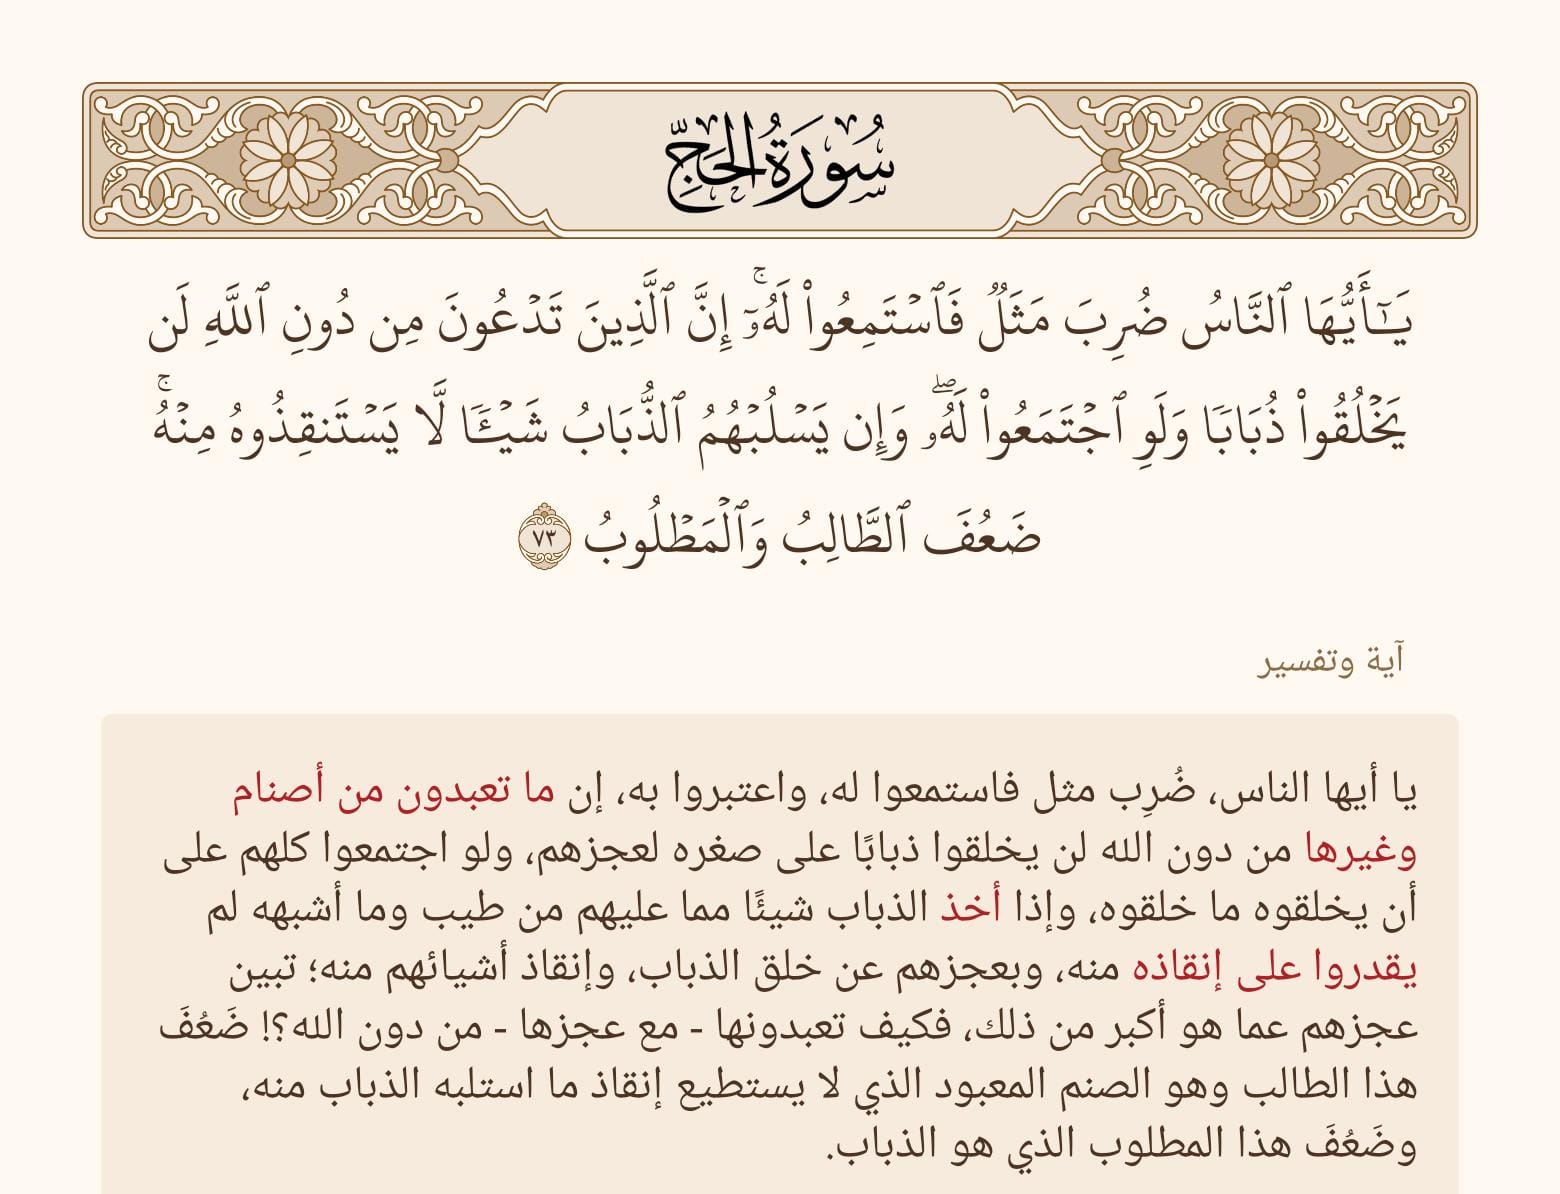 سُورَةُ الحَجِّ
يَـٰٓأَيُّهَا ٱلنَّاسُ ضُرِبَ مَثَلٌ فَٱسْتَمِعُوا۟ لَهُۥٓ ۚ إِنَّ ٱلَّذِينَ تَدْعُونَ مِن دُونِ ٱللَّهِ لَن
يَخْلُقُوا۟ ذُبَابًا وَلَوِ ٱجْتَمَعُوا۟ لَهُۥ ۖ وَإِن يَسْلُبْهُمُ ٱلذُّبَابُ شَيْـًٔا لَّا يَسْتَنقِذُوهُ مِنْهُ ۚ
ضَعُفَ ٱلطَّالِبُ وَٱلْمَطْلُوبُ ٧٣
آية وتفسير
يا أيها الناس، ضُرِب مثل فاستمعوا له، واعتبروا به، إن ما تعبدون من أصنام
وغيرها من دون الله لن يخلقوا ذبابًا على صغره لعجزهم، ولو اجتمعوا كلهم على
أن يخلقوه ما خلقوه، وإذا أخذ الذباب شيئًا مما عليهم من طيب وما أشبهه لم
يقدروا على إنقاذه منه، وبعجزهم عن خلق الذباب، وإنقاذ أشيائهم منه؛ تبين
عجزهم عما هو أكبر من ذلك، فكيف تعبدونها - مع عجزها - من دون الله؟! ضَعُفَ
هذا الطالب وهو الصنم المعبود الذي لا يستطيع إنقاذ ما استلبه الذباب منه،
وضَعُفَ هذا المطلوب الذي هو الذباب.